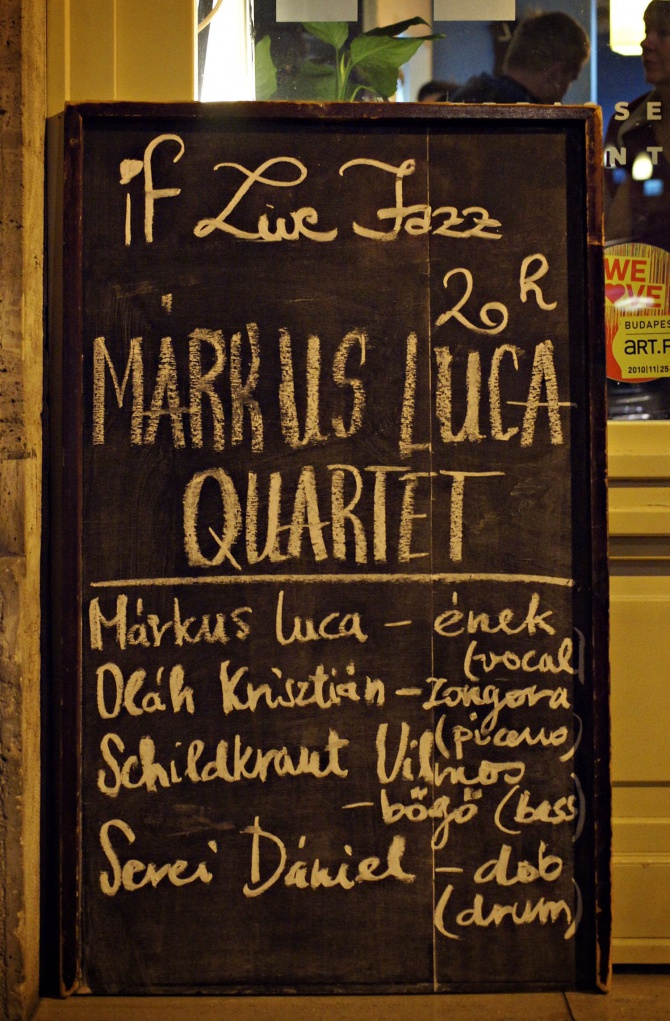 if Live Jazz
20h
MÁRKUS LUCA
QUARTET
Márkus Luca – ének
(vocal)
Oláh Krisztián – zongora
(piano)
Schildkraut Vilmos
– bőgő (bass)
Serei Dániel – dob
(drum)
SE
NT
WE
VE
BUDAPES
ART.F
2010|11|25-